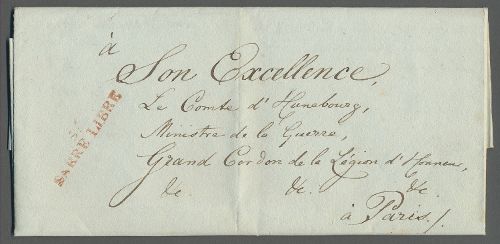 à
Son Excellence,
Le Comte d'Hunebourg,
Ministre de la Guerre,
Grand Cordon de la Légion d'Honneur,
&c. &c. &c.
à Paris./.
SARRE LIBRE